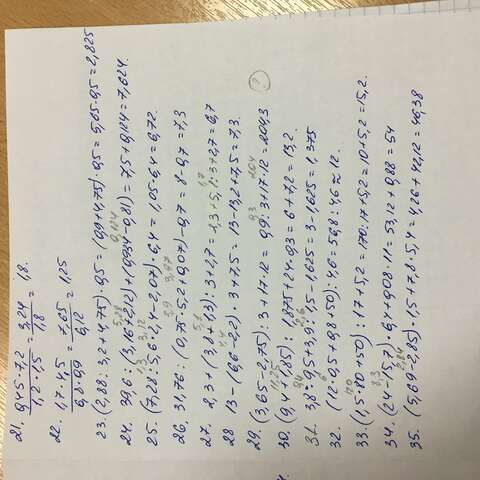 21. 0,45·7,2 / 1,2·1,5 = 3,24 / 1,8 = 1,8.
22. 1,7·4,5 / 6,8·0,9 = 7,65 / 6,12 = 1,25
23. (2,88 : 3,2 + 4,75) · 0,5 = (0,9 + 4,75) · 0,5 = 5,65·0,5 = 2,825
24. 39,6 : (3,16 + 2,12) + (0,934 - 0,81) = 7,5 + 0,124 = 7,624.
25. (7,28 : 5,6 · 2,4 - 2,07) · 6,4 = 1,05·6,4 = 6,72.
26. 31,76 : (0,75·5,2 + 0,07) - 0,7 = 8 - 0,7 = 7,3
27. 2,3 + (3,8 + 1,3) : 3 + 2,7 = 2,3 + 5,1 : 3 + 2,7 = 6,7
28 13 - (6,6 - 2,2) · 3 + 7,5 = 13 - 13,2 + 7,5 = 7,3.
29. (3,65 - 2,75) : 3 + 17·12 = 0,9 : 3 + 17·12 = 204,3
30. (9,4 + 1,85) : 1,875 + 24·0,3 = 6 + 7,2 = 13,2.
31. 3,8 : 9,5 + 3,9 : 1,5 - 1,625 = 3 - 1,625 = 1,375
33. (1,5·80 + 50) : 17 + 5,2 = 170 : 17 + 5,2 = 10 + 5,2 = 15,2.
34. (24 - 15,7) · 6,4 + 0,08·11 = 53,12 + 0,88 = 54
35. (5,69 - 2,85) · 1,5 + 7,8·5,4 = 4,26 + 42,12 = 46,38